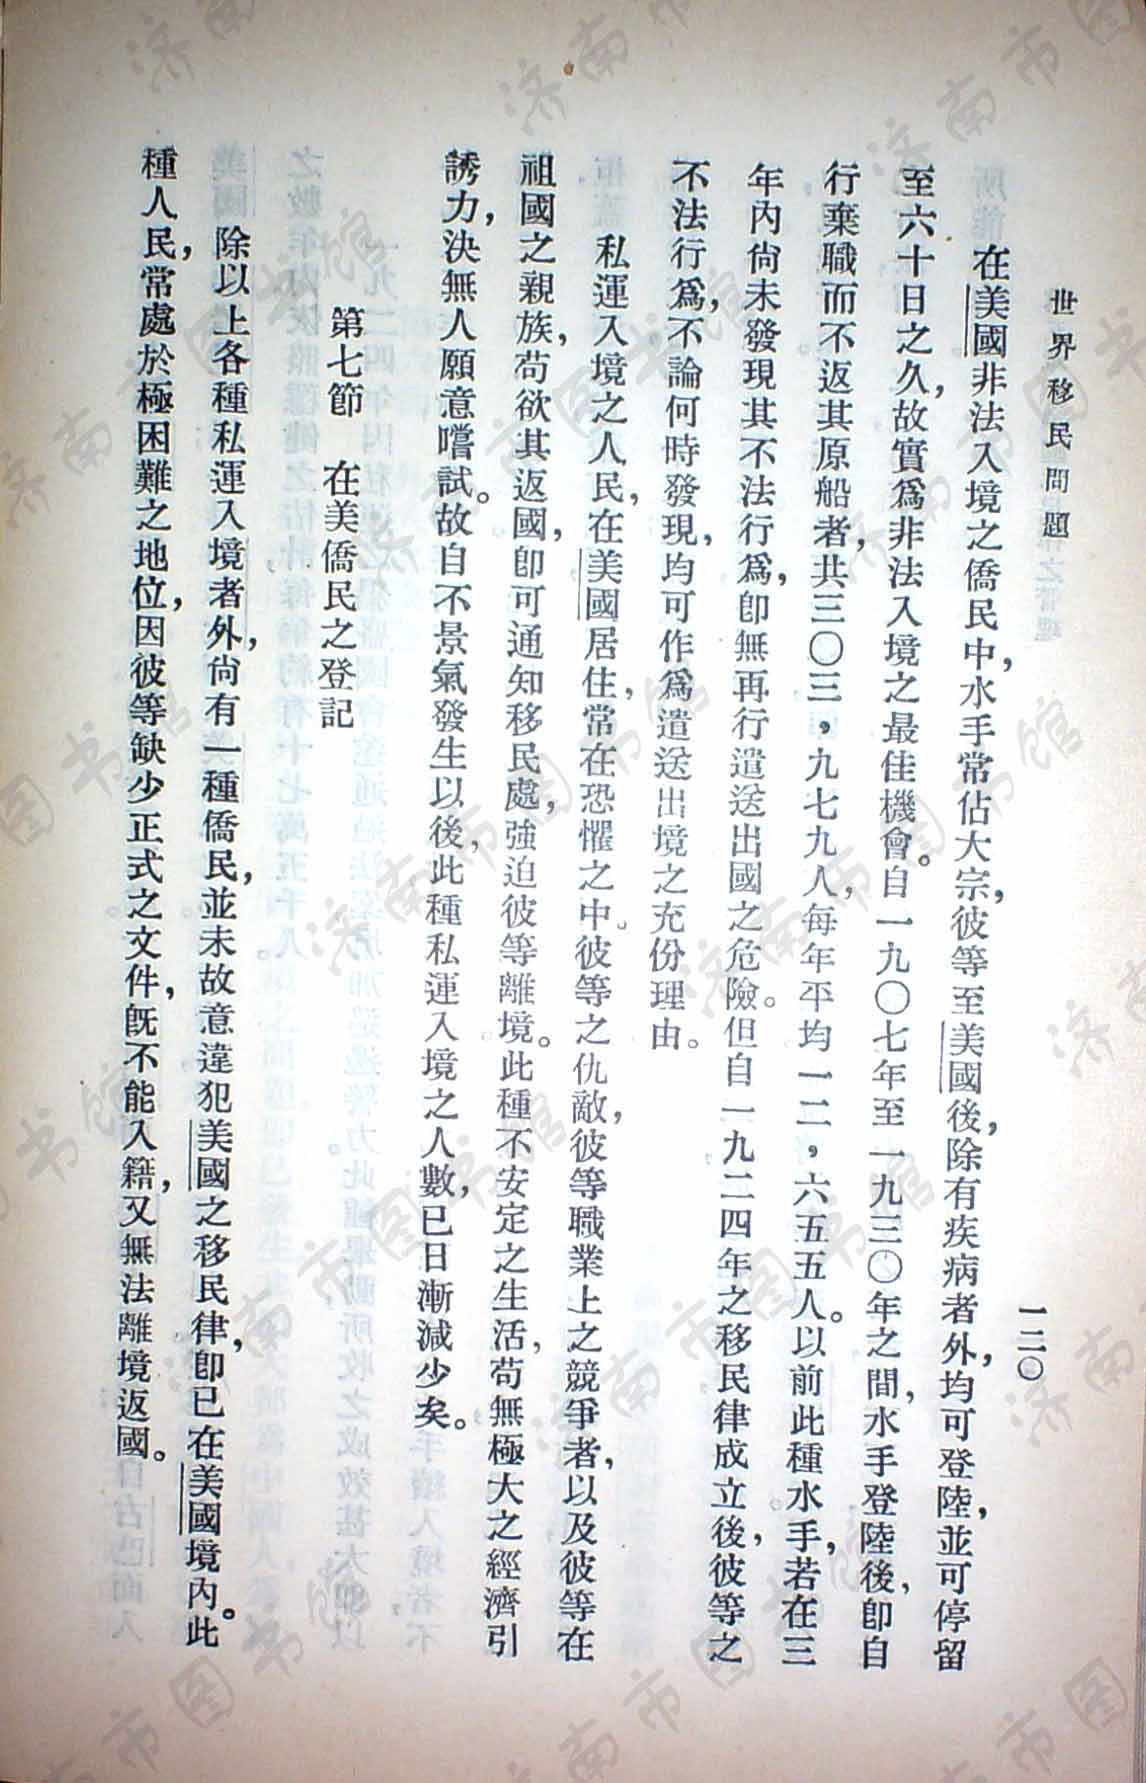 世界移民問題
一二〇
在美國非法入境之僑民中，水手常佔大宗，彼等至美國後，除有疾病者外，均可登陸，並可停留
至六十日之久，故實爲非法入境之最佳機會。自一九〇七年至一九三〇年之間，水手登陸後，卽自
行棄職而不返其原船者，共三〇三，九七九人，每年平均一二，六五五人。以前此種水手，若在三
年內尙未發現其不法行爲，卽無再行遣送出國之危險。但自一九二四年之移民律成立後，彼等之
不法行爲，不論何時發現，均可作爲遣送出境之充份理由。
私運入境之人民，在美國居住，常在恐懼之中。彼等之仇敵，彼等職業上之競爭者，以及彼等在
祖國之親族，苟欲其返國，卽可通知移民處，強迫彼等離境。此種不安定之生活，苟無極大之經濟引
誘力，決無人願意嚐試。故自不景氣發生以後，此種私運入境之人數，已日漸減少矣。
第七節　在美僑民之登記
除以上各種私運入境者外，尙有一種僑民，並未故意違犯美國之移民律，卽已在美國境內。此
種人民，常處於極困難之地位，因彼等缺少正式之文件，旣不能入籍，又無法離境返國。
济南市图书馆